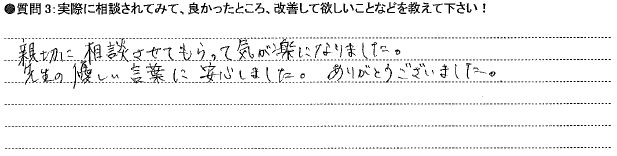 ●質問3:実際に相談されてみて、良かったところ、改善して欲しいことなどを教えて下さい!
親切に相談させてもらって気が楽になりました。
先生の優しい言葉に安心しました。ありがとうございました。